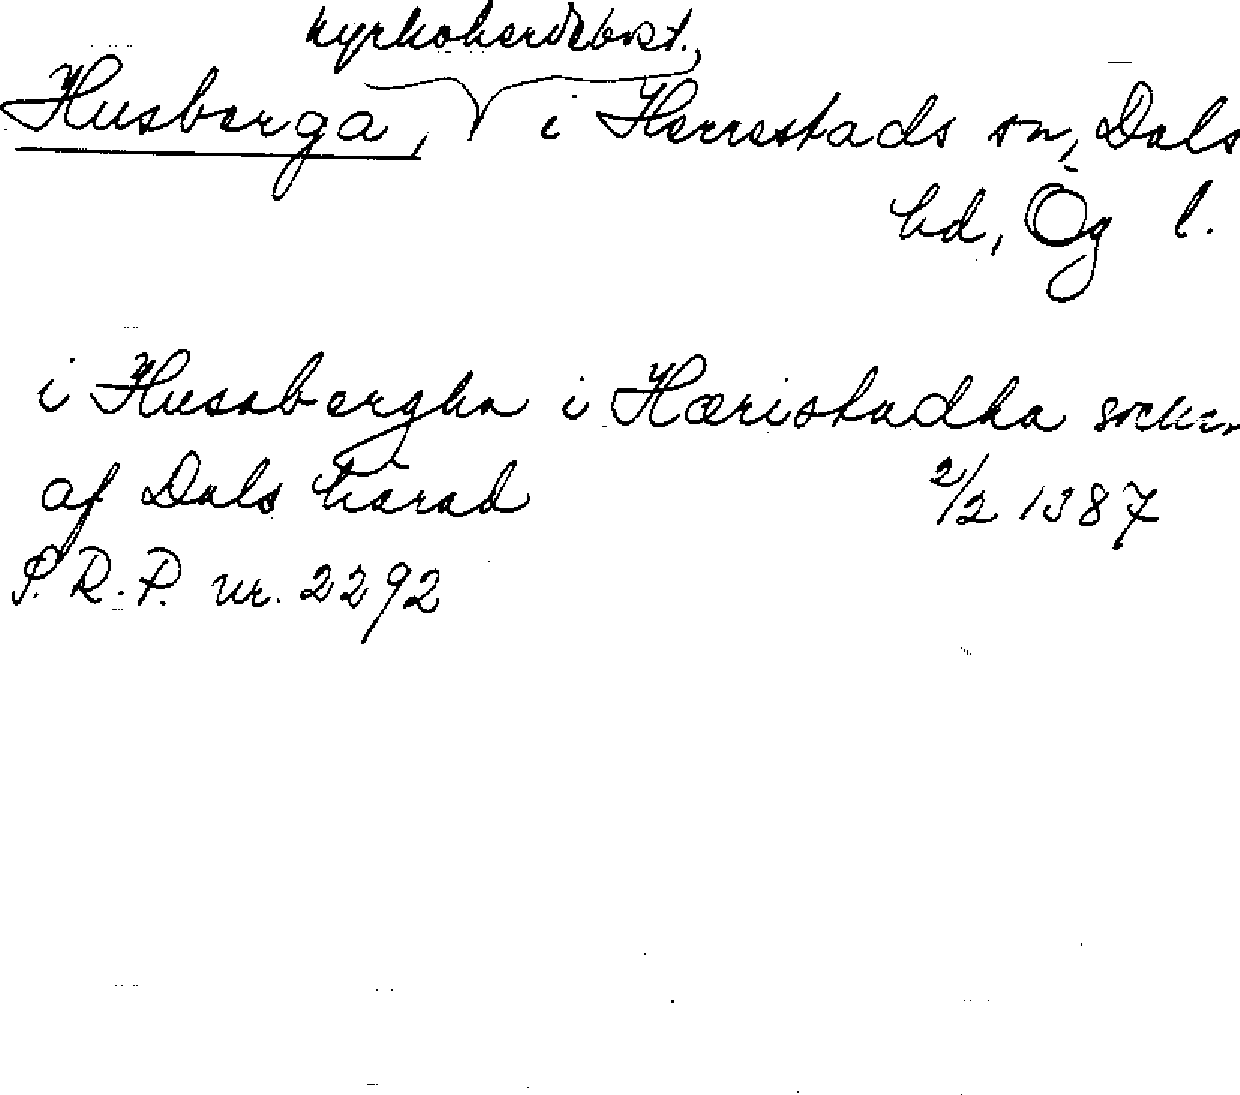 kyrkoherdebost.
Husberga, i Herrestads sn, Dals
hd, Ög l.
i Husabergha i Hæristadha socken
af Dals härad 2/2 1387
S.R.P. nr. 2292